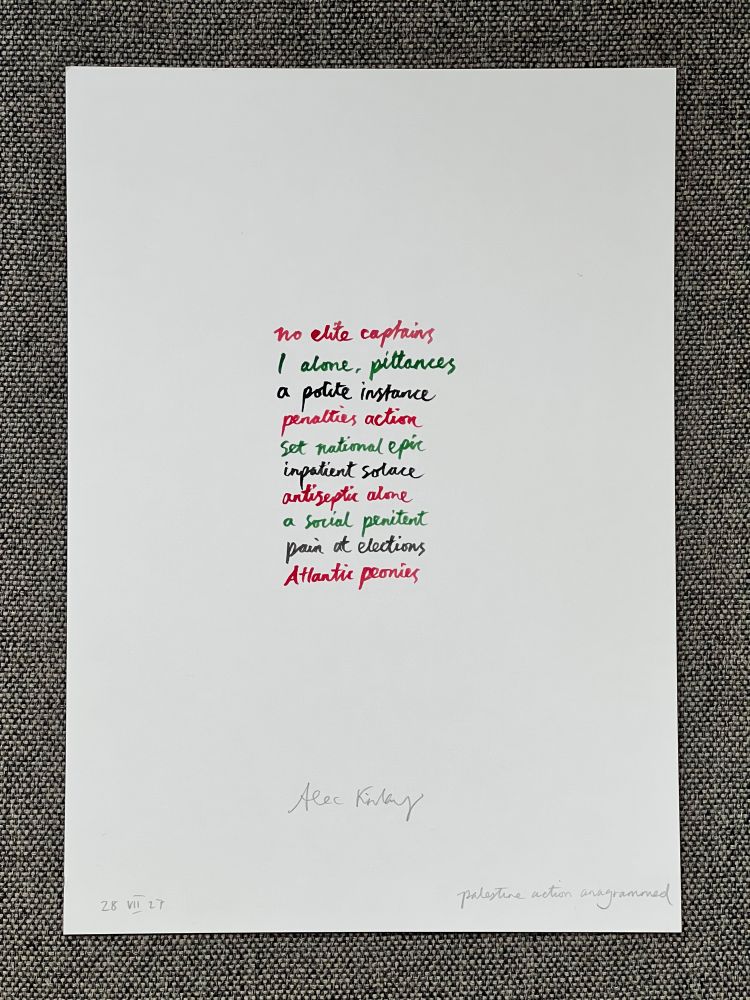 no elite captains
I alone, pittances
a polite instance
penalties action
set national epic
inpatient solace
antiseptic alone
a social penitent
pain at elections
Atlantic peonies
Alec
28 VII
palestine action anagrammed